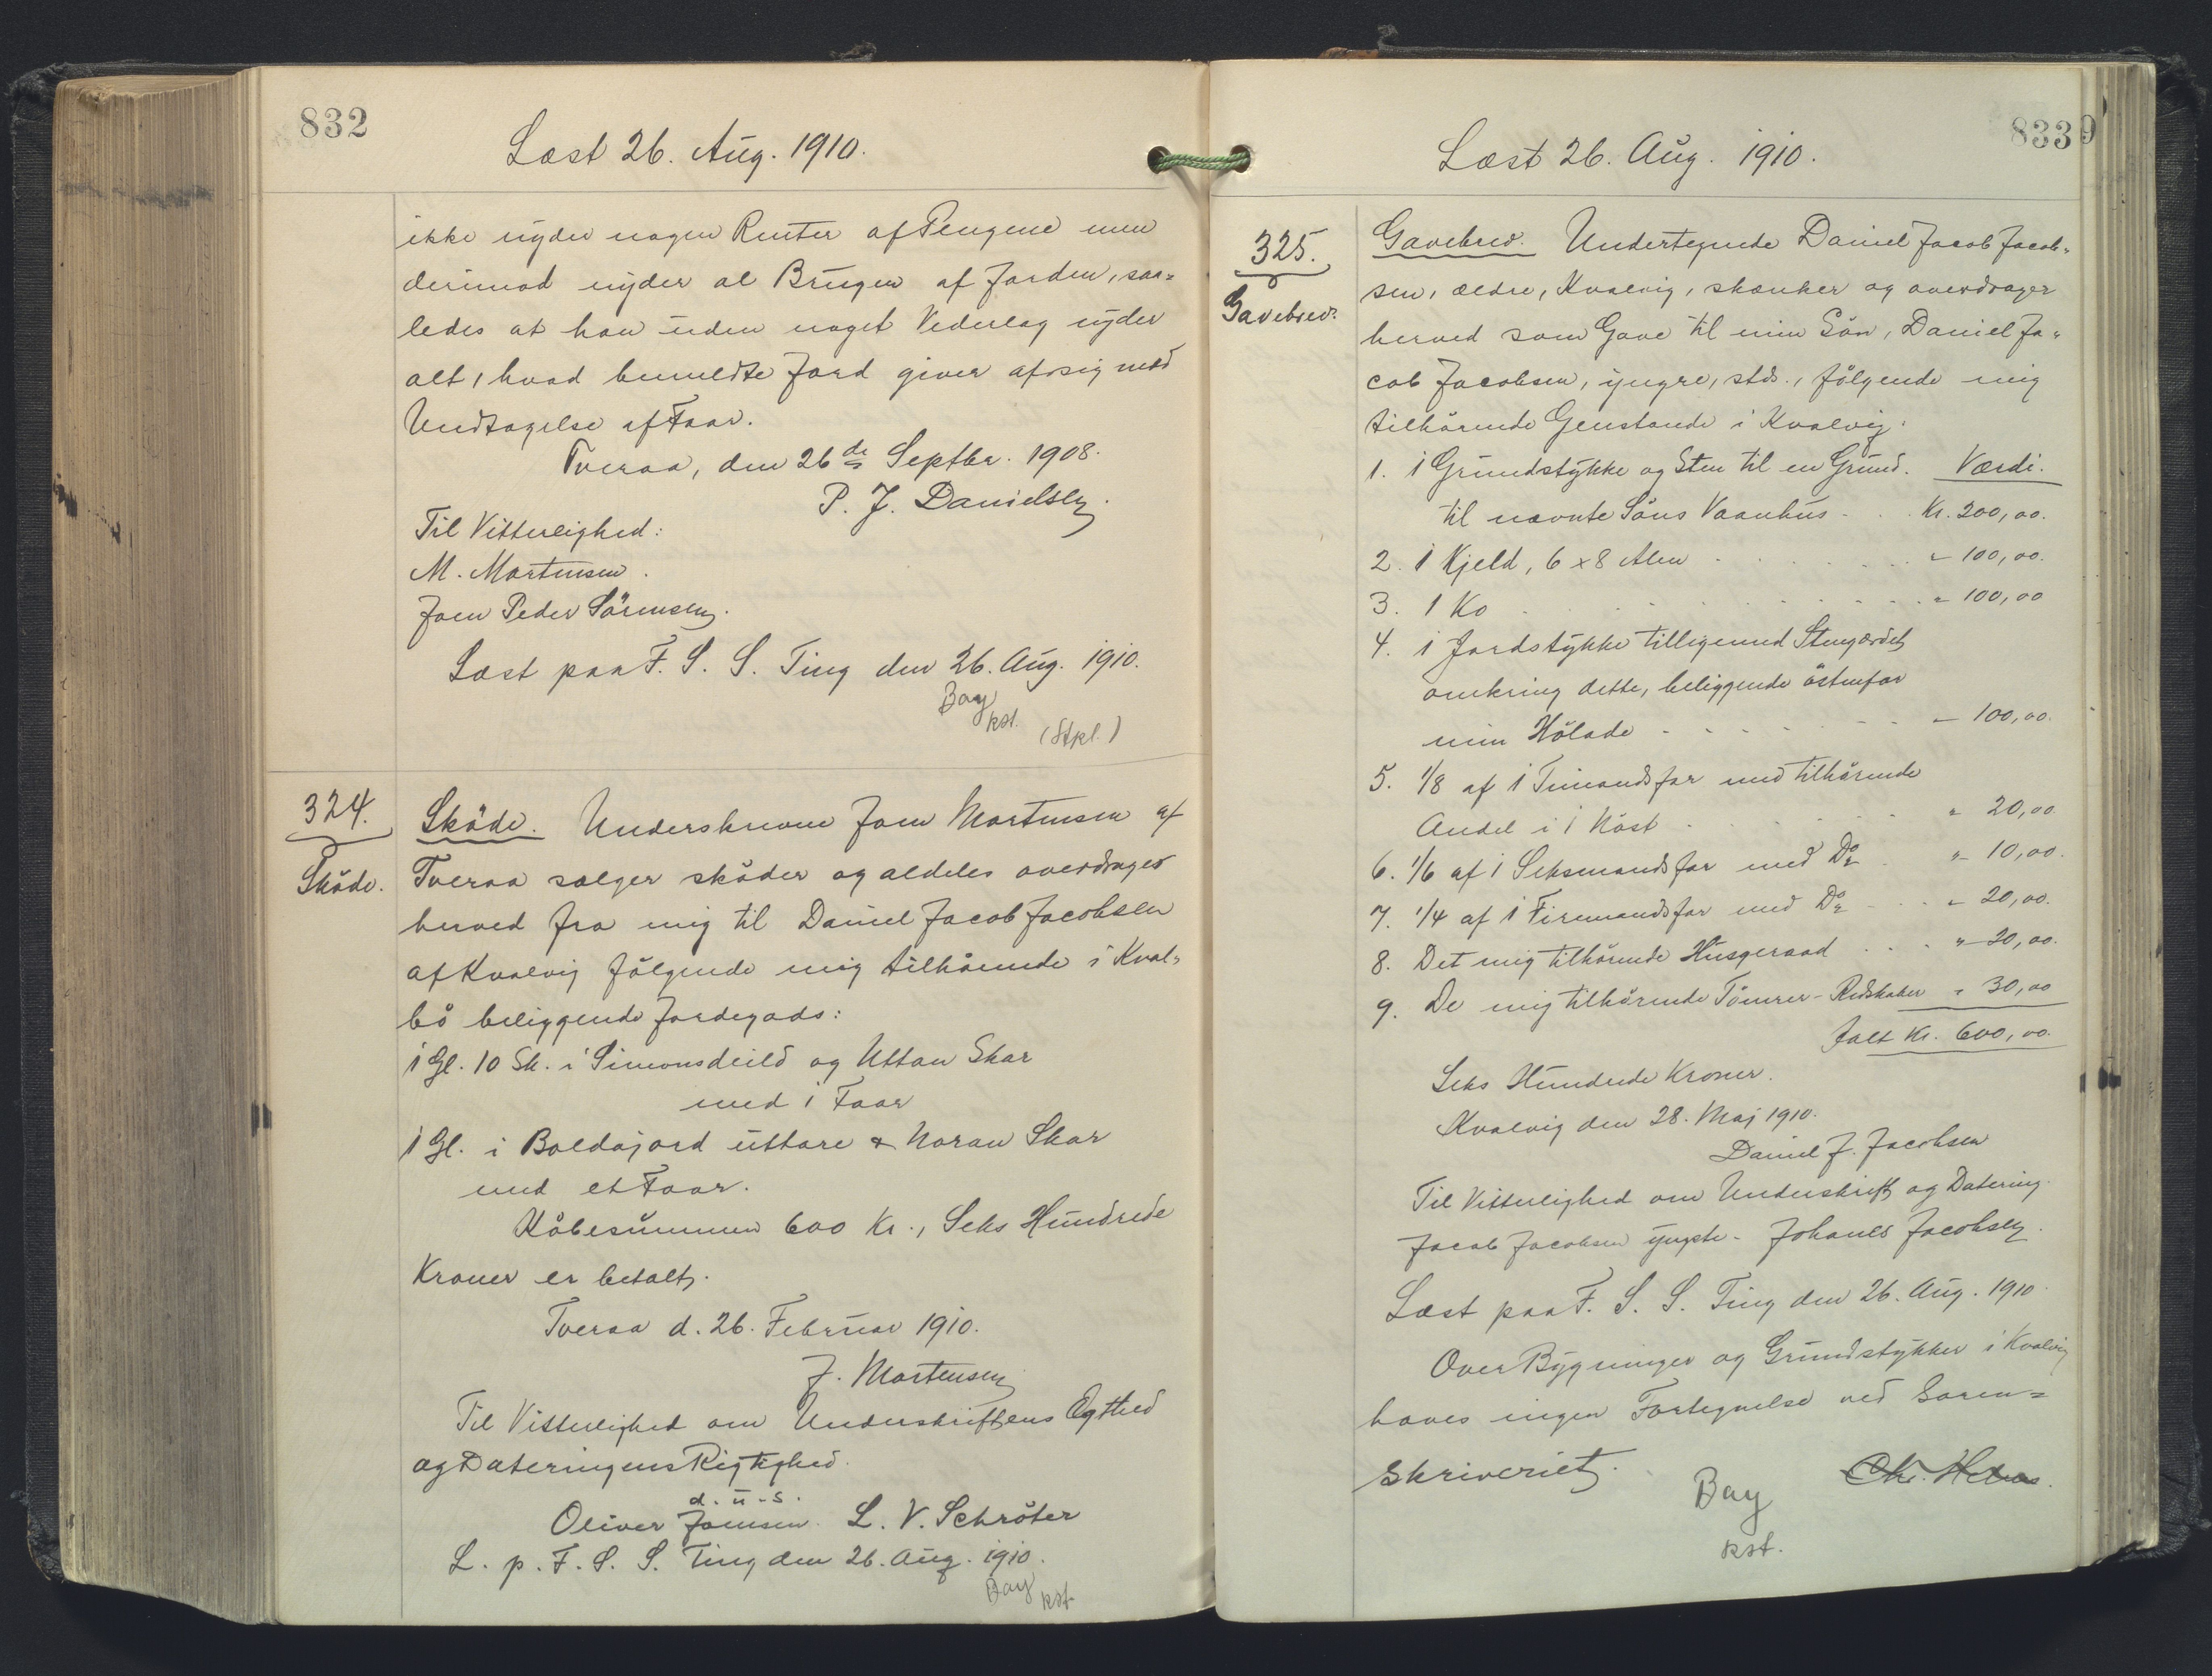 832
Læst 26. Aug. 1910.
ikke nyder nogen Renter af Pengene men
derimod nyder al Brugen af Jorden, saa-
ledes at han uden noget Vederlag nyder
alt, hvad bemeldte Jord giver af sig med
Undtagelse af Faar.
Tveraa, den 26de Septbr. 1908.
P. J. Danielsen.
Til Vitterlighed:
M. Mortensen.
Joen Peder Sörensen.
Læst paa F. S. S. Ting den 26. Aug. 1910.
Bay
kst.
(Stpl.)
324.
Sköde.
Sköde. Underskrevne Joen Mortensen af
Tveraa sælger sköder og aldeles overdrager
herved fra mig til Daniel Jacob Jacobsen
af Kvalvig fölgende mig tilhörende i Kval-
bö beliggende Jordegods:
1 Gl. 10 Sk. i Simonsdeild og Uttan Skar
med 1 Faar
1 Gl. i Boldajord uttare & Noran Skar
med et Faar.
Köbesummen 600 Kr., Seks Hundrede
Kroner er betalt.
Tveraa d. 26. Februar 1910.
J. Mortensen
Til Vitterlighed om Underskriftens Ægthed
og Dateringens Rigtighed.
d. u. s.
Oliver Joensen. L. V. Schröter
L. p. F. S. S. Ting den 26. Aug. 1910.
Bay kst.
833
9
Læst 26. Aug. 1910.
325.
Gavebrev.
Gavebrev. Undertegnede Daniel Jacob Jacob-
sen, ældre, Kvalvig, skænker og overdrager
herved som Gave til min Sön, Daniel Ja-
cob Jacobsen, yngre, stds., fölgende mig
tilhörende Genstande i Kvalvig:
1. 1 Grundstykke og Sten til en Grund. Værdi.
til nævnte Söns Vaanhus - . . Kr. 200,00.
2. 1 Kjeld, 6 x 8 Alen . . . . . . . - 100,00.
3. 1 Ko . . . . . . . . . . . - 100,00
4. 1 Jordstykke tilligemed Stengærdet
omkring dette, beliggende östenfor
min Hölade - . . . . - - 100,00.
5. 1/8 af 1 Timandsfar med tilhörende
Andel i 1 Nöst . . . . . . " 20,00
6. 1/6 af 1 Seksmandsfar med Do . "- 10,00.
7. 1/4 af 1 Firemandsfar med Do - . . - 20,00.
8. Det mig tilhörende Husgeraad . . . "- 20,00.
9. De mig tilhörende Tömrer-Redskaber " 30,00
Jalt Kr. 600,00.
Seks Hundrede Kroner.
Kvalvig den 28. Maj 1910.
Daniel J. Jacobsen
Til Vitterlighed om Underskrift og Datering.
Jacob Jacobsen yngste - Johanes Jacobsen.
Læst paa F. S. S. Ting den 26. Aug. 1910.
Over Bygninger og Grundstykker i Kvalvig
haves ingen Fortegnelse ved Soren-
skriveriet.
Bay
kst.